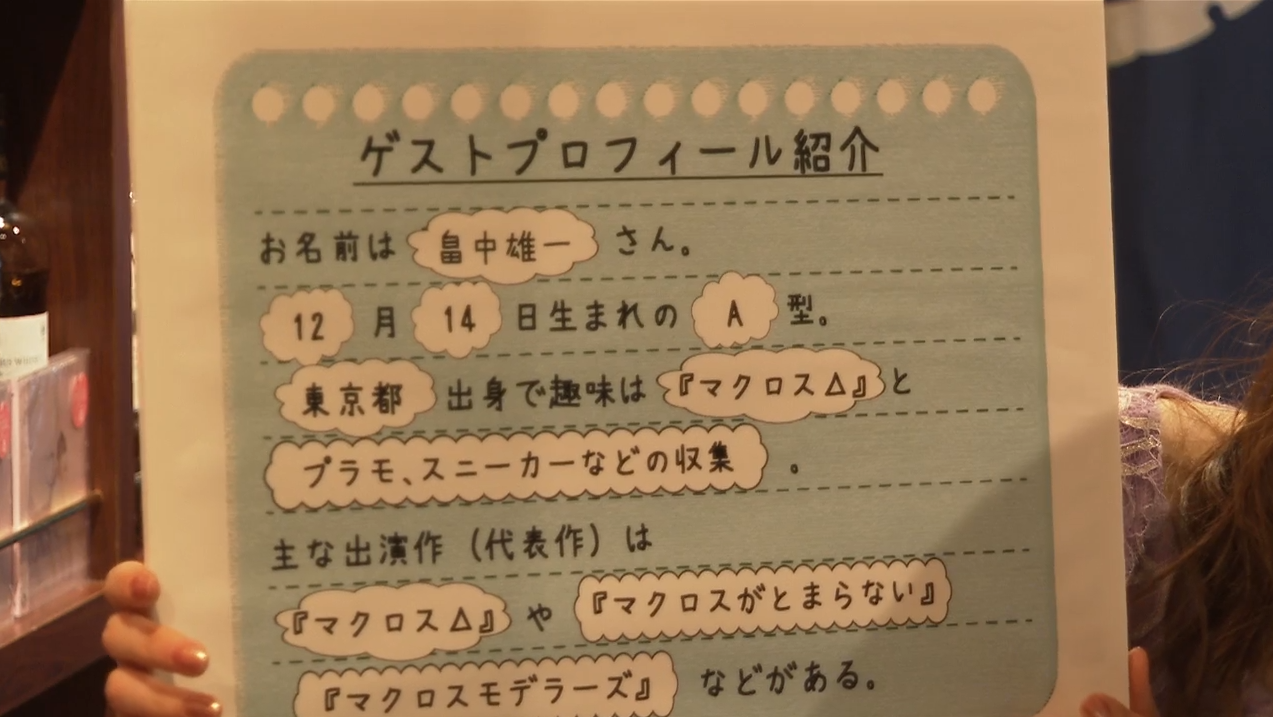 ゲストプロフィール紹介
お名前は 畠中雄一 さん。
12 月 14 日生まれの A 型。
東京都 出身で趣味は 『マクロスΔ』と
プラモ、スニーカーなどの収集 。
主な出演作（代表作）は
『マクロスΔ』 や 『マクロスがとまらない』
『マクロスモデラーズ』 などがある。